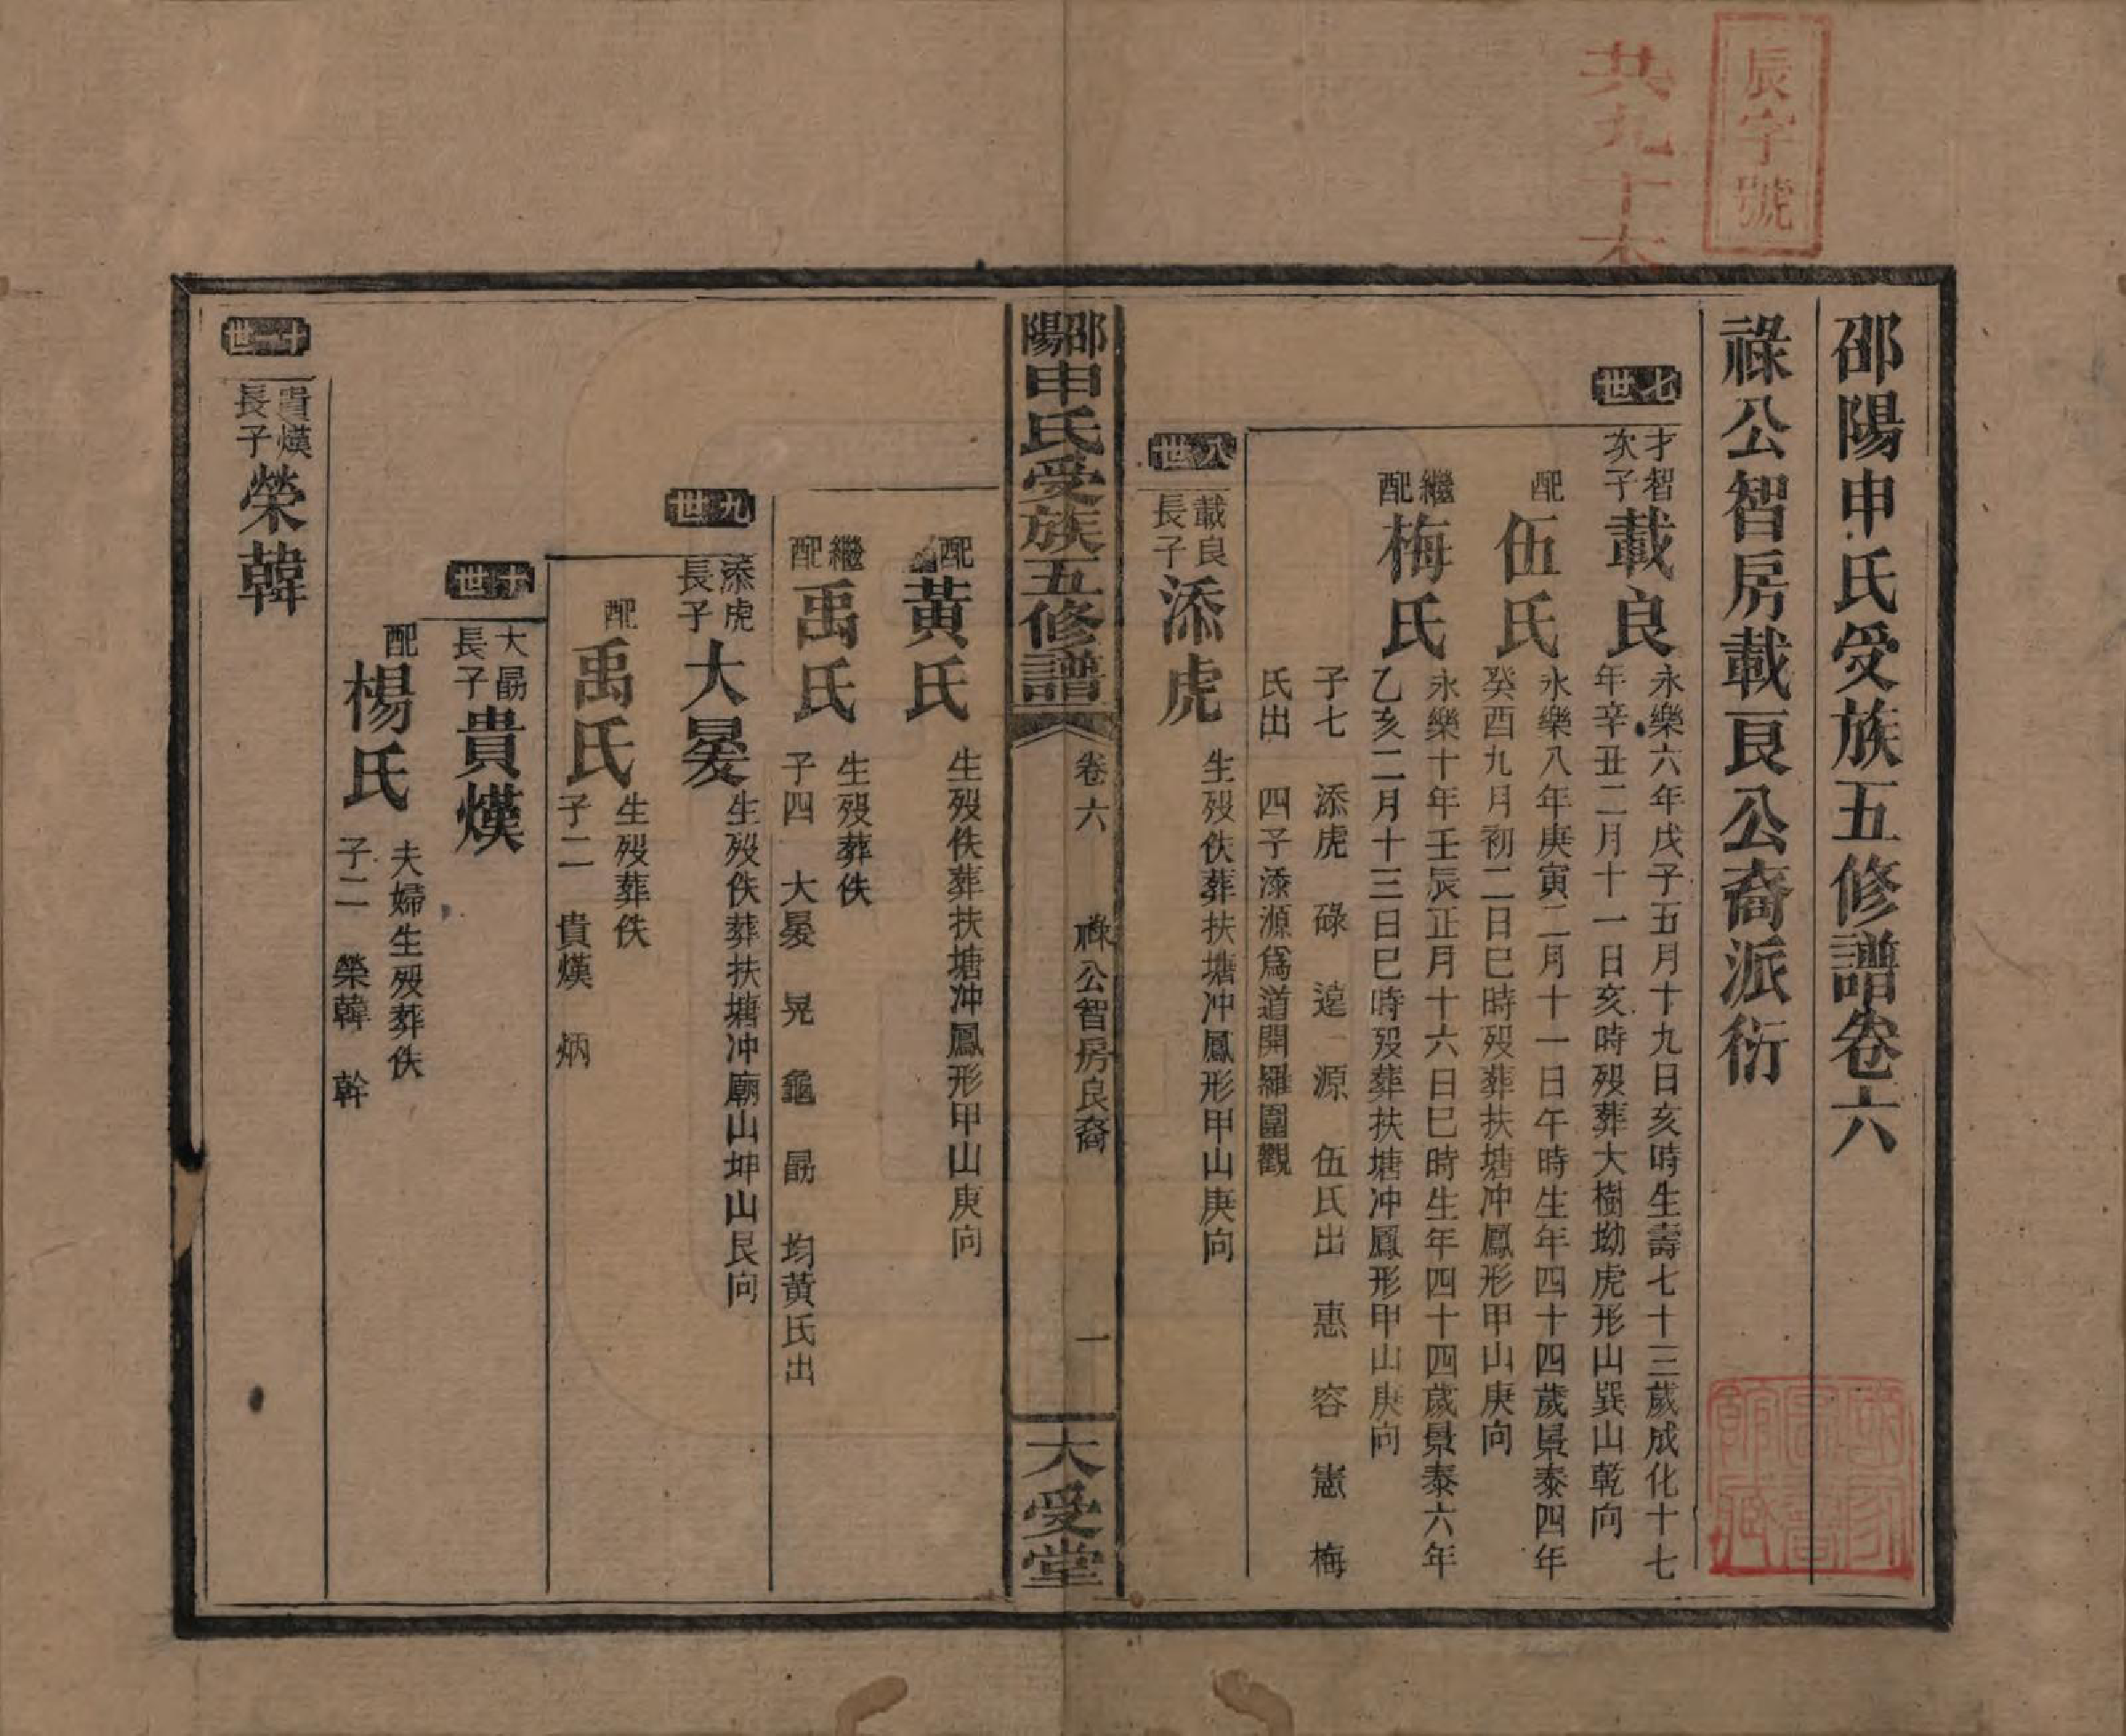 辰字號
共九十本
邵陽申氏受族五修譜卷六
祿公智房載良公裔派衍
七世
才智
次子
載良
永樂六年戊子五月十九日亥時生壽七十三歲成化十七
年辛丑二月十一日亥時歿葬大樹坳虎形山巽山乾向
配
伍氏
永樂八年庚寅二月十一日午時生年四十四歲景泰四年
癸酉九月初二日巳時歿葬扶塘冲鳳形甲山庚向
繼
配
梅氏
永樂十年壬辰正月十六日巳時生年四十四歲景泰六年
乙亥二月十三日巳時歿葬扶塘冲鳳形甲山庚向
子七 添虎 碌 遑 源 伍氏出 惠 容 憲 梅
氏出 四子添源爲道開羅圍觀
八世
載良
長子
添虎
生歿佚葬扶塘冲鳳形甲山庚向
邵陽申氏受族五修譜
卷六
祿公智房良裔
一
大受堂
配
黃氏
生歿佚葬扶塘冲鳳形甲山庚向
繼
配
禹氏
生歿葬佚
子四 大晏 晃 龜 勗 均黃氏出
九世
添虎
長子
大晏
生歿佚葬扶塘冲廟山坤山艮向
配
禹氏
生歿葬佚
子二 貴熯 炳
十世
大勗
長子
貴熯
配
楊氏
夫婦生歿葬佚
子二 榮韓 幹
十一世
貴熯
長子
榮韓